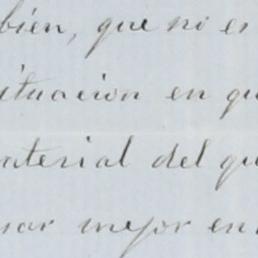 bien, que ni es
ituacion en qu
aterial del qu
sar mejor en